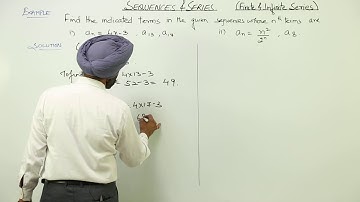 EXAMPLE
SEQUENCES & SERIES
(Finite & Infinite Series)
Find the indicated terms in the given sequences whose nth terms are
i) aₙ = 4n-3 , a₁₃ , a₁₇
ii) aₙ = n²/2ⁿ , a₈
SOLUTION
To find
4×13-3
= 52-3 = 49.
4×17-3
68